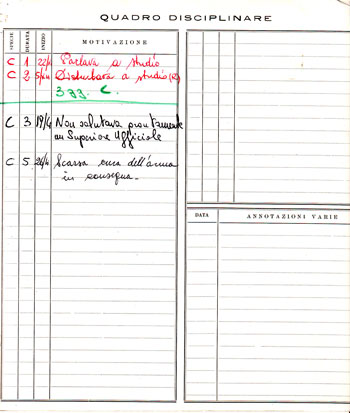 QUADRO DISCIPLINARE
SPECIE DURATA INIZIO MOTIVAZIONE
C 1 22/1 Parlava a studio
C 2 5/11 Disturbava a studio
3 gg. C.
C 3 19/4 Non salutava prontamente
un Superiore Ufficiale
C 5 26/4 Scarsa cura dell'arma
in consegna.
DATA ANNOTAZIONI VARIE